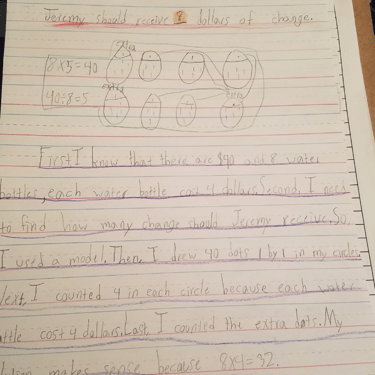 Jeremy should receive 8 dollars of change.
extra
8x5=40
40÷8=5
extra extra
First I know that there are $40 and 8 water
bottles, each water bottle cost 4 dollars. Second, I need
to find how many change should Jeremy receive. So,
I used a model. Then, I drew 40 dots 1 by 1 in my circles.
Next, I counted 4 in each circle because each water
ottle cost 4 dollars. Last I counted the extra dots. My
makes sense because 8x4=32.